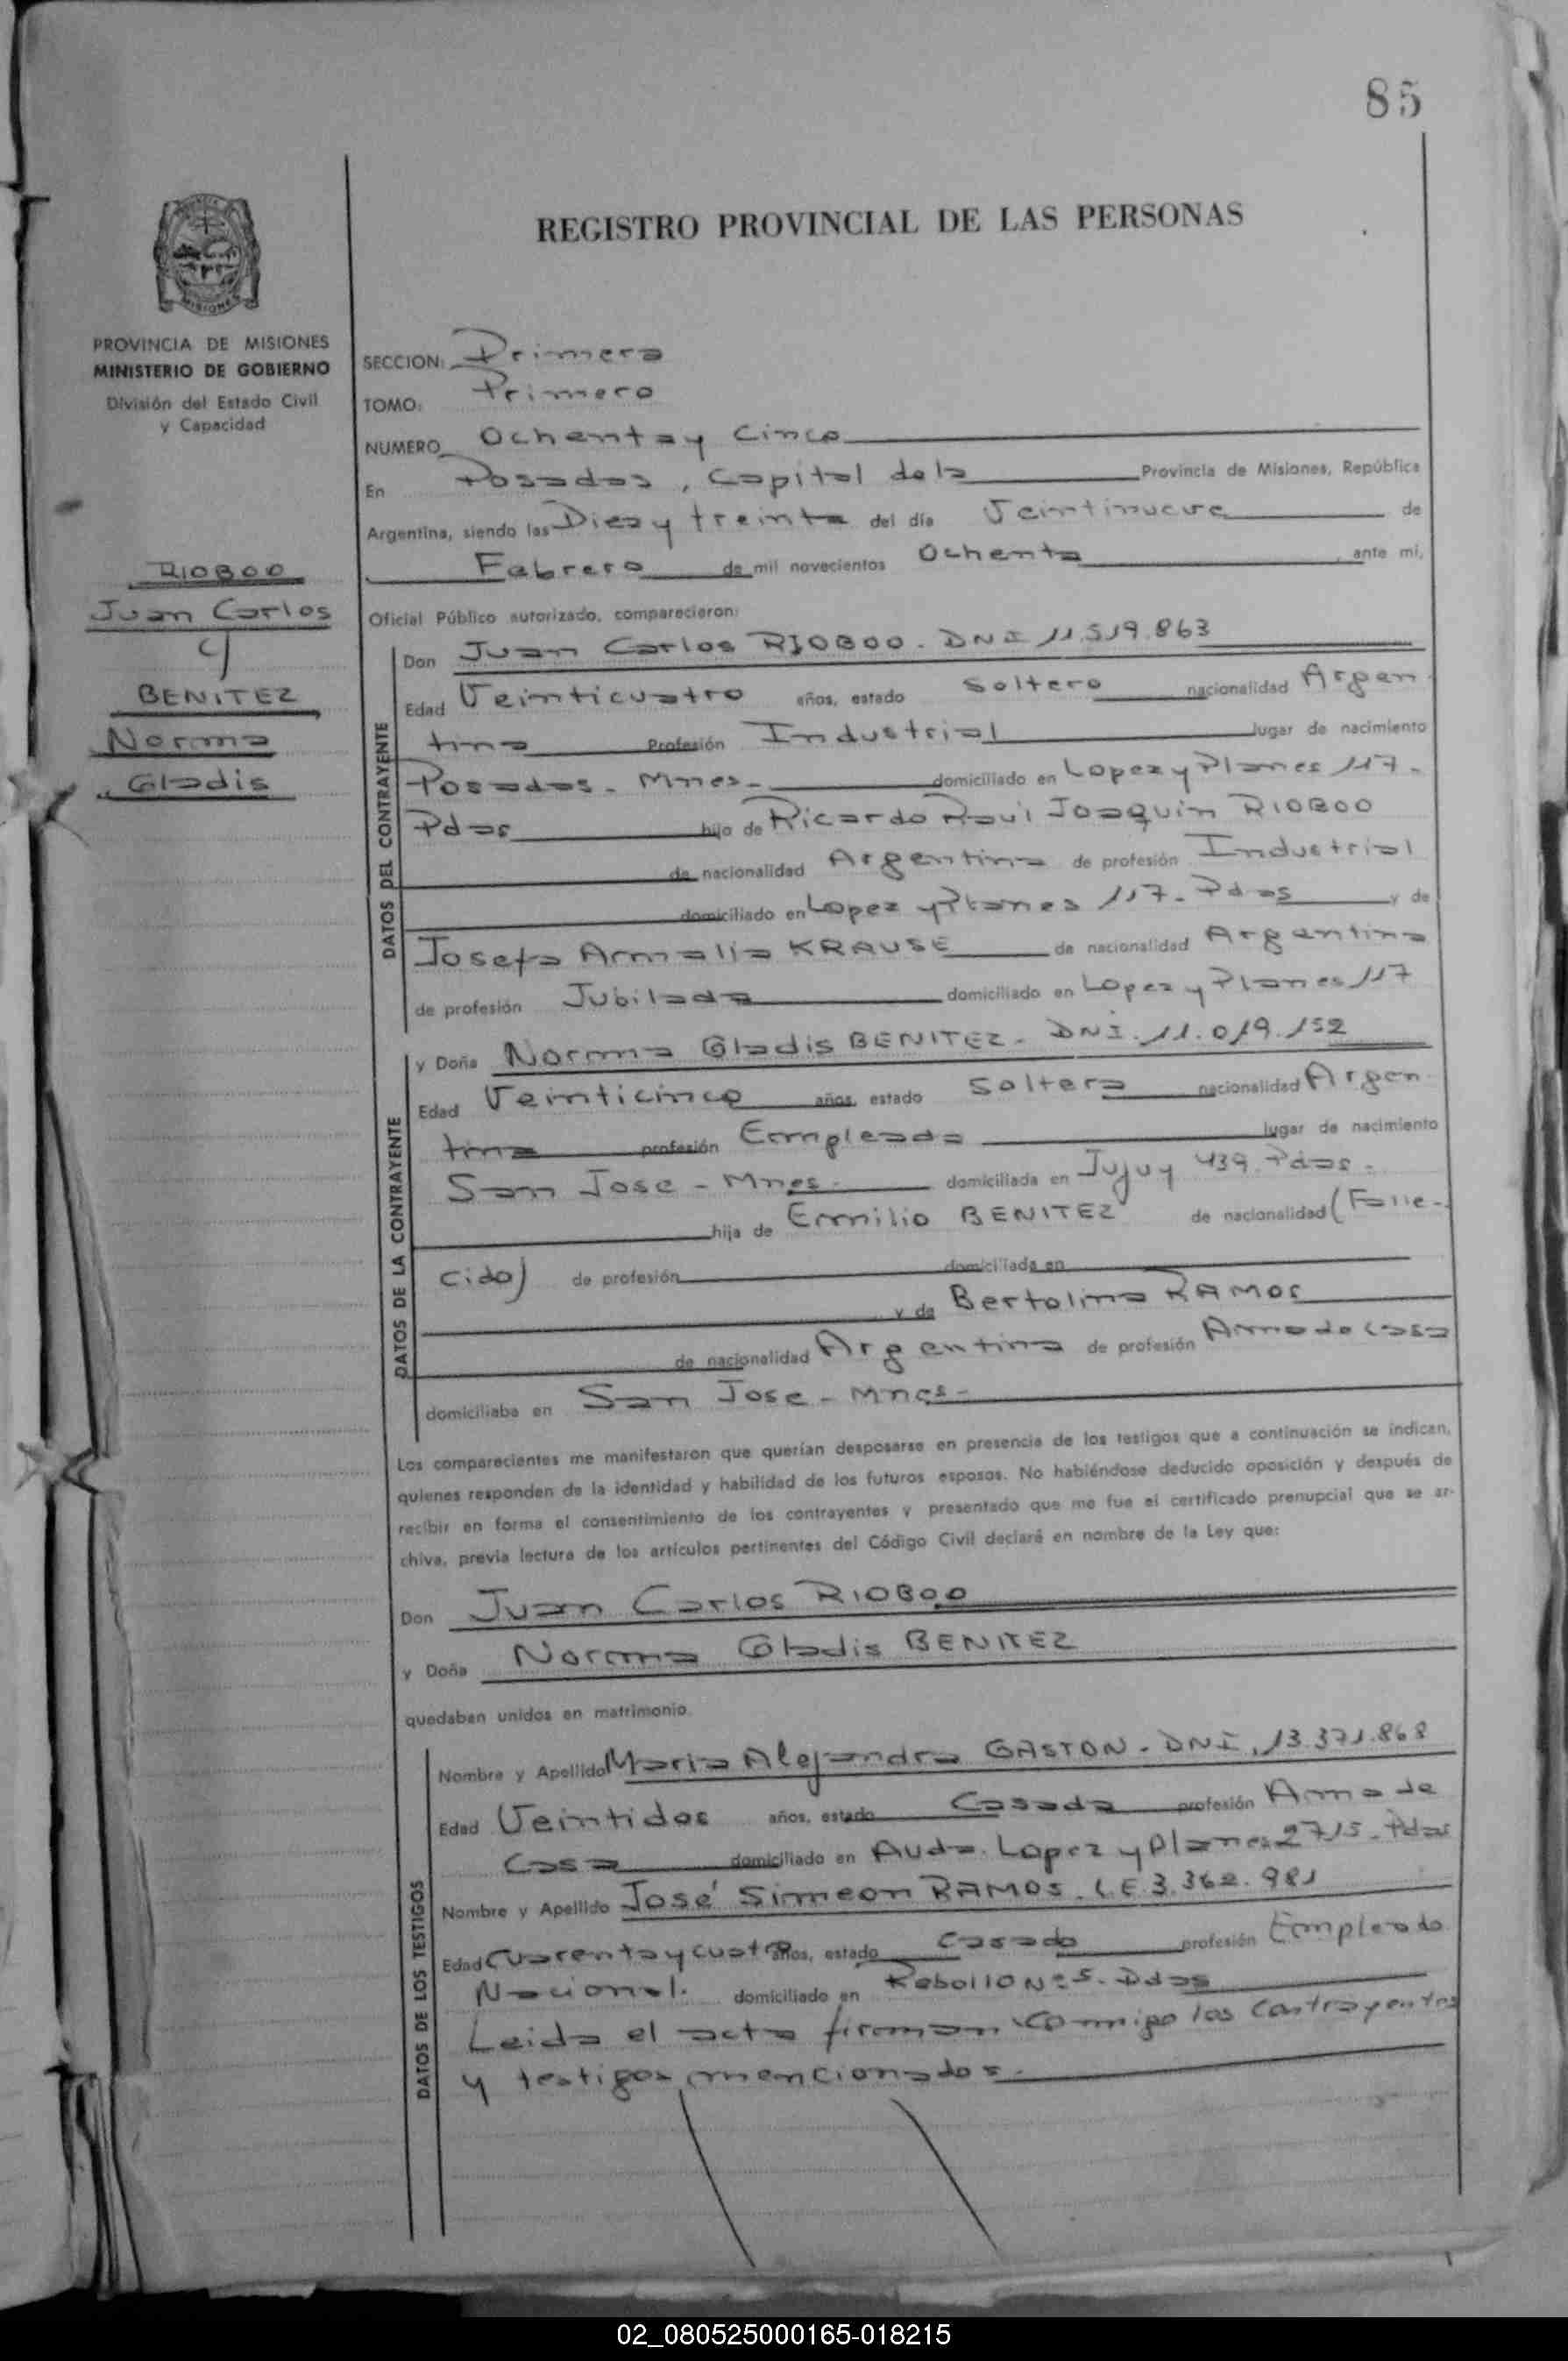 85
REGISTRO PROVINCIAL DE LAS PERSONAS
MISIONES
PROVINCIA DE MISIONES
MINISTERIO DE GOBIERNO
División del Estado Civil
y Capacidad
RIOBOO
Juan Carlos
y
BENITEZ
Norma
Gladis
SECCION: Primera
TOMO: Primero
NUMERO Ochenta y Cinco
En Posadas, Capital de la Provincia de Misiones, República
Argentina, siendo las Diez y treinta del día Veintinueve de
Febrero de mil novecientos Ochenta, ante mi,
Oficial Público autorizado, comparecieron:
DATOS DEL CONTRAYENTE
Don Juan Carlos RIOBOO. DNI 11.519.863
Edad Veinticuatro años, estado Soltero nacionalidad Argen
tina Profesión Industrial lugar de nacimiento
Posadas. Mnes. domiciliado en Lopez y Planes 117.
Pdas hijo de Ricardo Raul Joaquin RIOBOO
de nacionalidad Argentina de profesión Industrial
domiciliado en Lopez y Planes 117. Pdas y de
Josefa Armalia KRAUSE de nacionalidad Argentina
de profesión Jubilada domiciliado en Lopez y Planes 117
DATOS DE LA CONTRAYENTE
y Doña Norma Gladis BENITEZ. DNI. 11.019.152
Edad Veinticinco años, estado Soltera nacionalidad Argen
tina profesión Empleada lugar de nacimiento
San Jose - Mnes. domiciliada en Jujuy 439. Pdas.
hija de Emilio BENITEZ de nacionalidad (Falle-
cido) de profesión domiciliada en
y de Bertolina RAMOS
de nacionalidad Argentina de profesión Ama de casa
domiciliaba en San Jose - Mnes-
Los comparecientes me manifestaron que querían desposarse en presencia de los testigos que a continuación se indican,
quienes responden de la identidad y habilidad de los futuros esposos. No habiéndose deducido oposición y después de
recibir en forma el consentimiento de los contrayentes y presentado que me fue el certificado prenupcial que se ar-
chiva, previa lectura de los artículos pertinentes del Código Civil declaré en nombre de la Ley que:
Don Juan Carlos RIOBOO
y Doña Norma Gladis BENITEZ
quedaban unidos en matrimonio
DATOS DE LOS TESTIGOS
Nombre y Apellido Maria Alejandra GASTON. DNI. 13.371.868
Edad Veintidos años, estado Casada profesión Ama de
Casa domiciliado en Avda. Lopez y Planes 2715. Pdas
Nombre y Apellido José Simeon RAMOS. L.E. 3.362.981
Edad Cuarenta y cuatro años, estado casado profesión Empleado
Nacional. domiciliado en Rebollo Nº 5. Pdas
Leida el acta firman conmigo los contrayentes
y testigos mencionados.
02_080525000165-018215